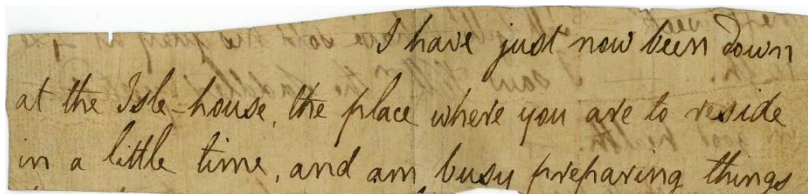 I have just now been down
at the Isle-house, the place where you are to reside
in a little time, and am busy preparing things